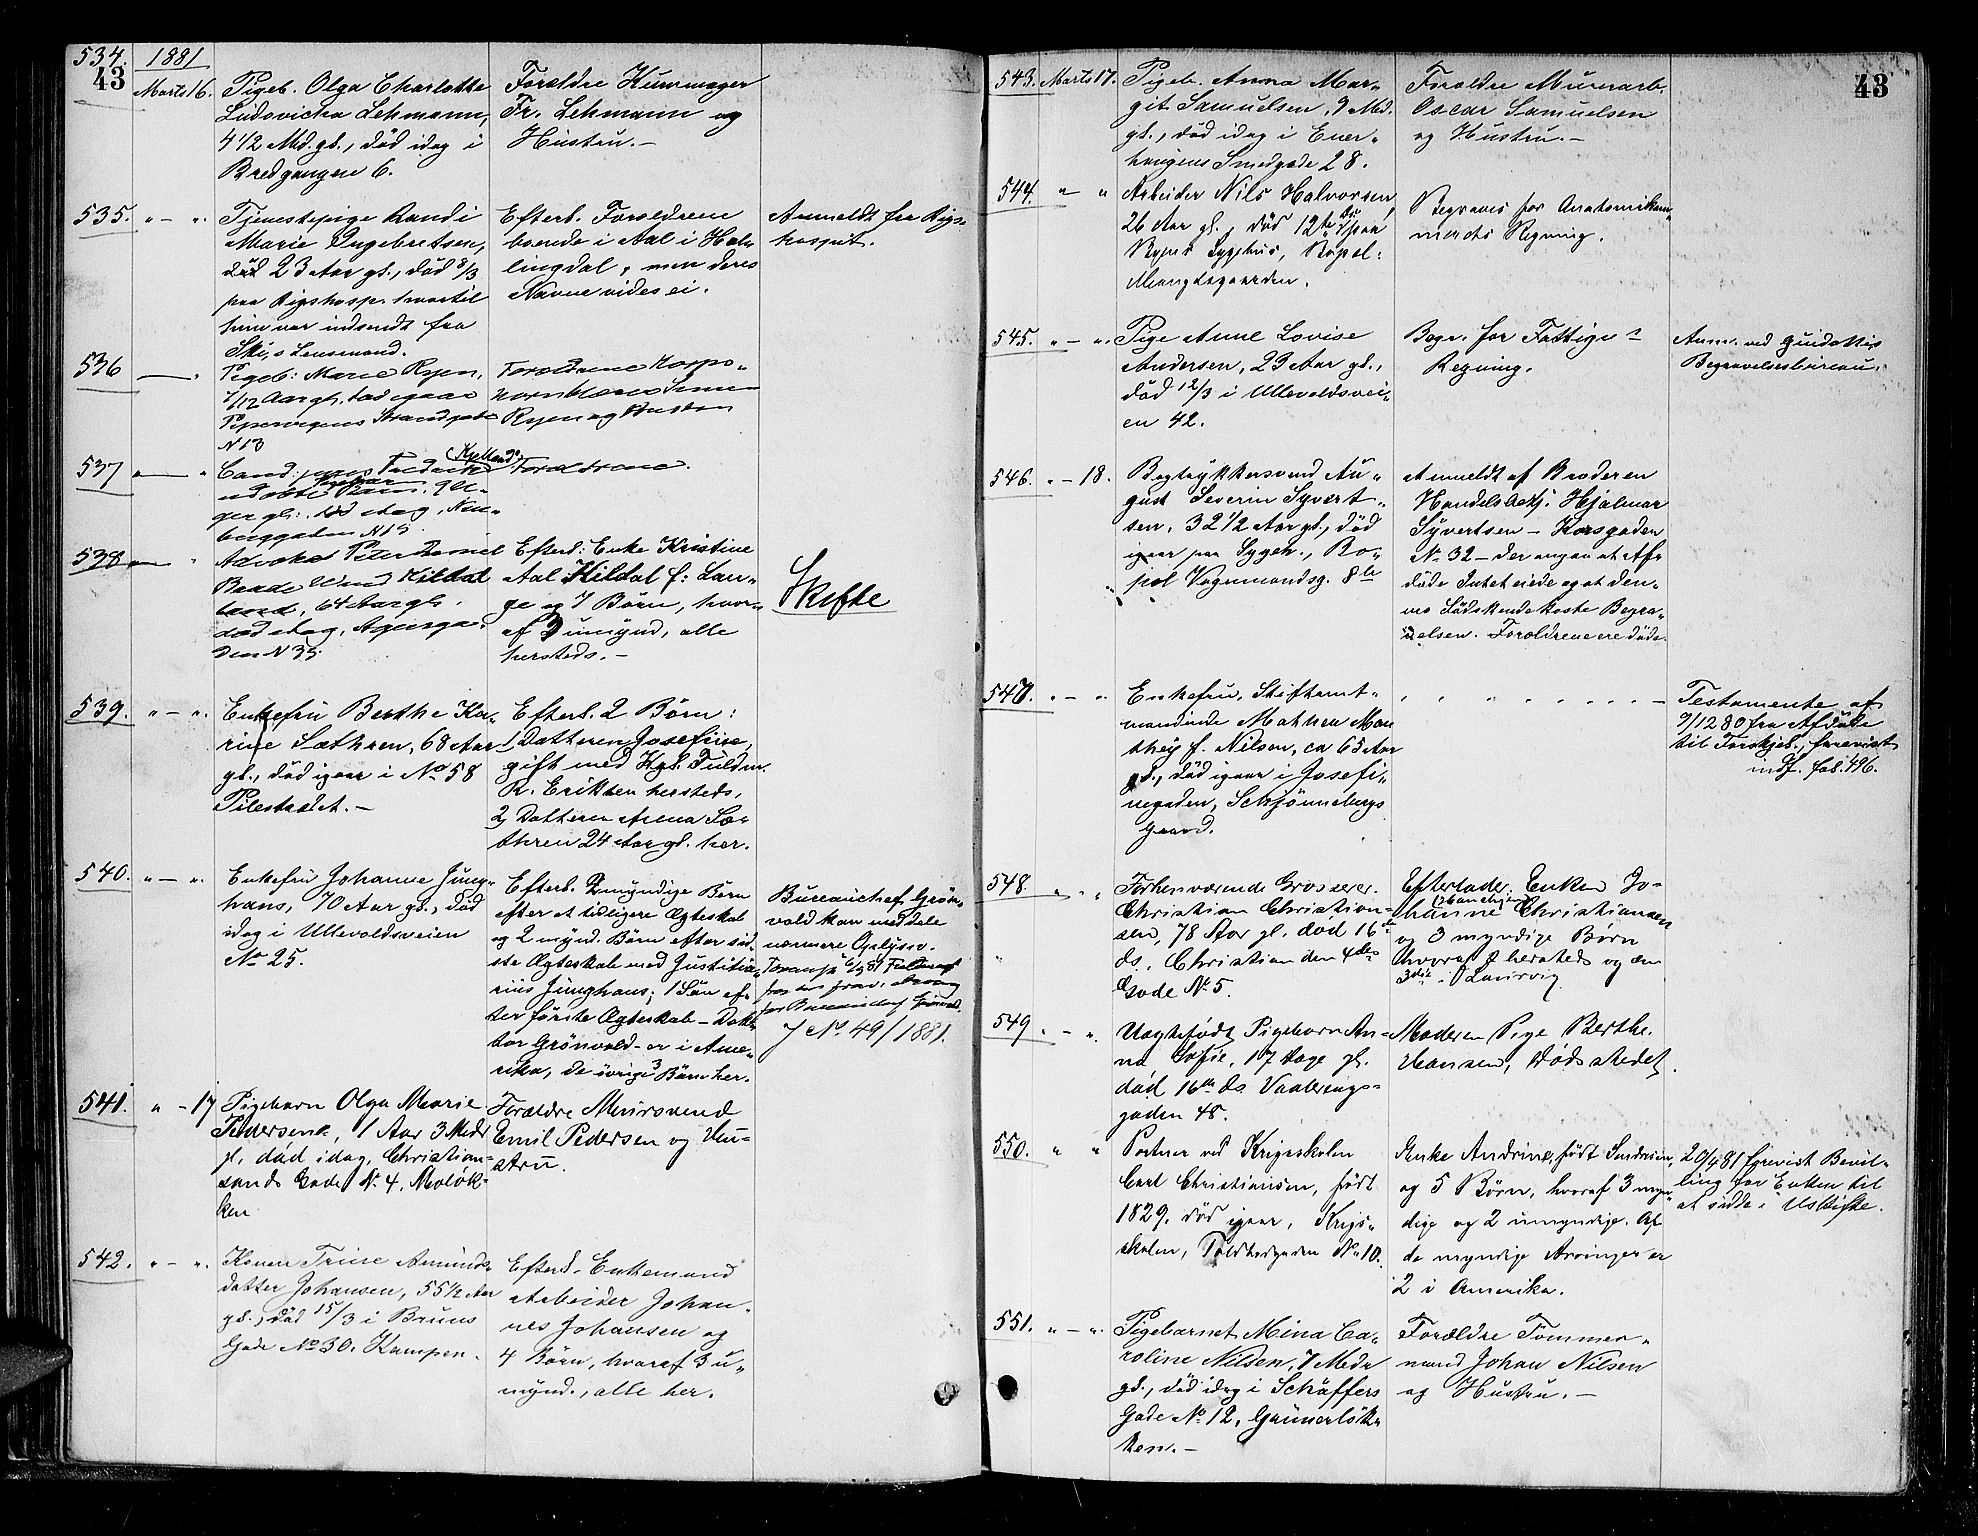 43
534. 1881
Marts 16. Pigeb. Olga Charlotte
Ludovicka Lehmann,
4 1/2 Md. gl., död idag i
Bredgangen 6.
Forældre
Fr. Lehmann og
Hustru. —
535. " — " Tjenestepige Randi
Marie Ingebretsen,
23 Aar gl., död 8/3
paa Rigshosp. hvortil
hun var indsendt fra
Ski,s Lensmand.
Efterl. Forældrene
boende i Aal i Hal-
lingdal, men deres
Navne vides ei.
Anmeldt fra Rigs-
hospit.
536 — " Pigeb: Marie Ryen,
7/12 Aar gl. död igaar
Pipervigens Strandgade
N 13
Forældrene
Ryen og Hustru
537 — " Cand:
död idag,
N 15
Forældrene.
538 — " Advokat Peter Daniel
Baade Wind Kildal
64 Aar gl.
död idag, Agersga-
den N 35
Efterl: Enke Kristine
Aal Kildal f: Lan-
ge og 7 Börn, hvor-
af 3 umynd, alle
hersteds. —
Skifte
539. " — " Enkefru Berthe Ka-
rine Sæthren, 68 Aar
gl., död igaar i No 58
Pilestrædet. —
Efterl. 2 Börn:
1, Datteren Josefine,
gift med Kgl. Fuldm.
R. Eriksen hersteds,
2, Datteren Anna Sæ-
thren 24 Aar gl. her.
540. " — " Enkefru Johanne Jung-
hans, 70 Aar gl., död
idag i Ullevoldsveien
No 25.
Efterl. 2 myndige Börn
efter et tidligere Ægteskab
og 2 mynd. Börn efter sid-
ste Ægteskab med Justitia-
rius Junghans; 1 Sön ef-
ter förste Ægteskab — Dok-
tor Grönvold — er i Ame-
rika, de övrige 3 Börn her.
Bureauchef Grön-
vold kan meddele
nærmere Oplysn.
J No. 49/1881.
541. " — 17 Pigebarn Olga Marie
Pedersen, 1 Aar 3 Mdr
gl. död idag, Christian-
sands Gade No. 4, Meløk-
ken
Forældre Murersvend
Emil Pedersen og Hu-
stru.
542. " — " Konen Trine Amunds-
datter Johansen, 55 1/2 Aar
gl., död 15/3 i Bruns
Gade No 30, Kampen.
Efterl. Enkemand
Arbeider Johan-
nes Johansen og
4 Börn, hvoraf 3 u-
mynd., alle her.
43
543. Marts 17. Pigeb. Anna Mar-
git Samuelsen, 7 Md.
gl., död idag i Ener-
haugens Smedgade 28.
Forældre Murerarb.
Oscar Samuelsen
og Hustru. —
544. " " Arbeider Nils Halvorsen,
26 Aar gl., död 12te ds paa
Byens Sygehus,
Mangelsgaarden.
Begraves for Anatomikam-
merets Regning.
545. " — " Pige Anne Lovise
Andersen, 23 Aar gl.,
död 12/3 i Ullevoldsvei-
en 42.
Begr. for Fattigv.
Regning.
Anm. ved Guidottis
Begravelsesbureau.
546. " — 18. Bogtrykkersvend Au-
gust Severin Syvert-
sen, 32 1/2 Aar gl., död
igaar paa Sygeh.,
Vognmandsg. 8
Anmeldt af Broderen
Handelsbetj. Hjalmar
Syvertsen — Korsgaden
No. 32 — der angav at Af-
döde Intet eiede og at den-
nes Södskende koste Begra-
velsen. Forældrene ere döde.
547. " — " Enkefru, Stiftamt-
mandinde Mathea Man-
they f. Nilsen, ca 65 Aar
gl., död igaar i Josefi-
negaden, Schjönnebergs
Gaard.
Testamente af
7/12 80 fra Afdöde
til Forskjel., forevist
indf. fol. 496.
548. " " Forhenværende Grosserer
Christian Christian-
sen, 78 Aar gl. död 16de
ds., Christian den 4des
Gade No 5.
Efterlader: Enken Jo-
hanne Christiansen
og 3 myndige Börn
hvoraf 2 hersteds og den
3die i Laurvig.
549. — " Uegtefødt Pigebarn An-
na Sofie, 17 Dage gl.
död 16de ds Vaalerengs-
gaden 48.
Moderen Pige Berthe
Hansen, Dødsstedet.
550. " " Portner ved Krigsskolen
Carl Christiansen, født
1829, död igaar, Krigs-
skolen, Toldbodgaden No. 10.
Enke Andrine, født Sundersen,
og 5 Börn, hvoraf 3 myn-
dige og 2 umyndige. Af
de myndige Arvinger er
2 i Amerika.
20/4 81 forevist Bevil-
ling for Enken til
at sidde i Uskifte.
551. " — " Pigebarnet Mina Ca-
roline Nilsen, 7 Mdr
gl., död idag i Schäffers
Gade No 12, Grünerløk-
ken. —
Forældre Tömmer-
mand Johan Nilsen
og Hustru. —